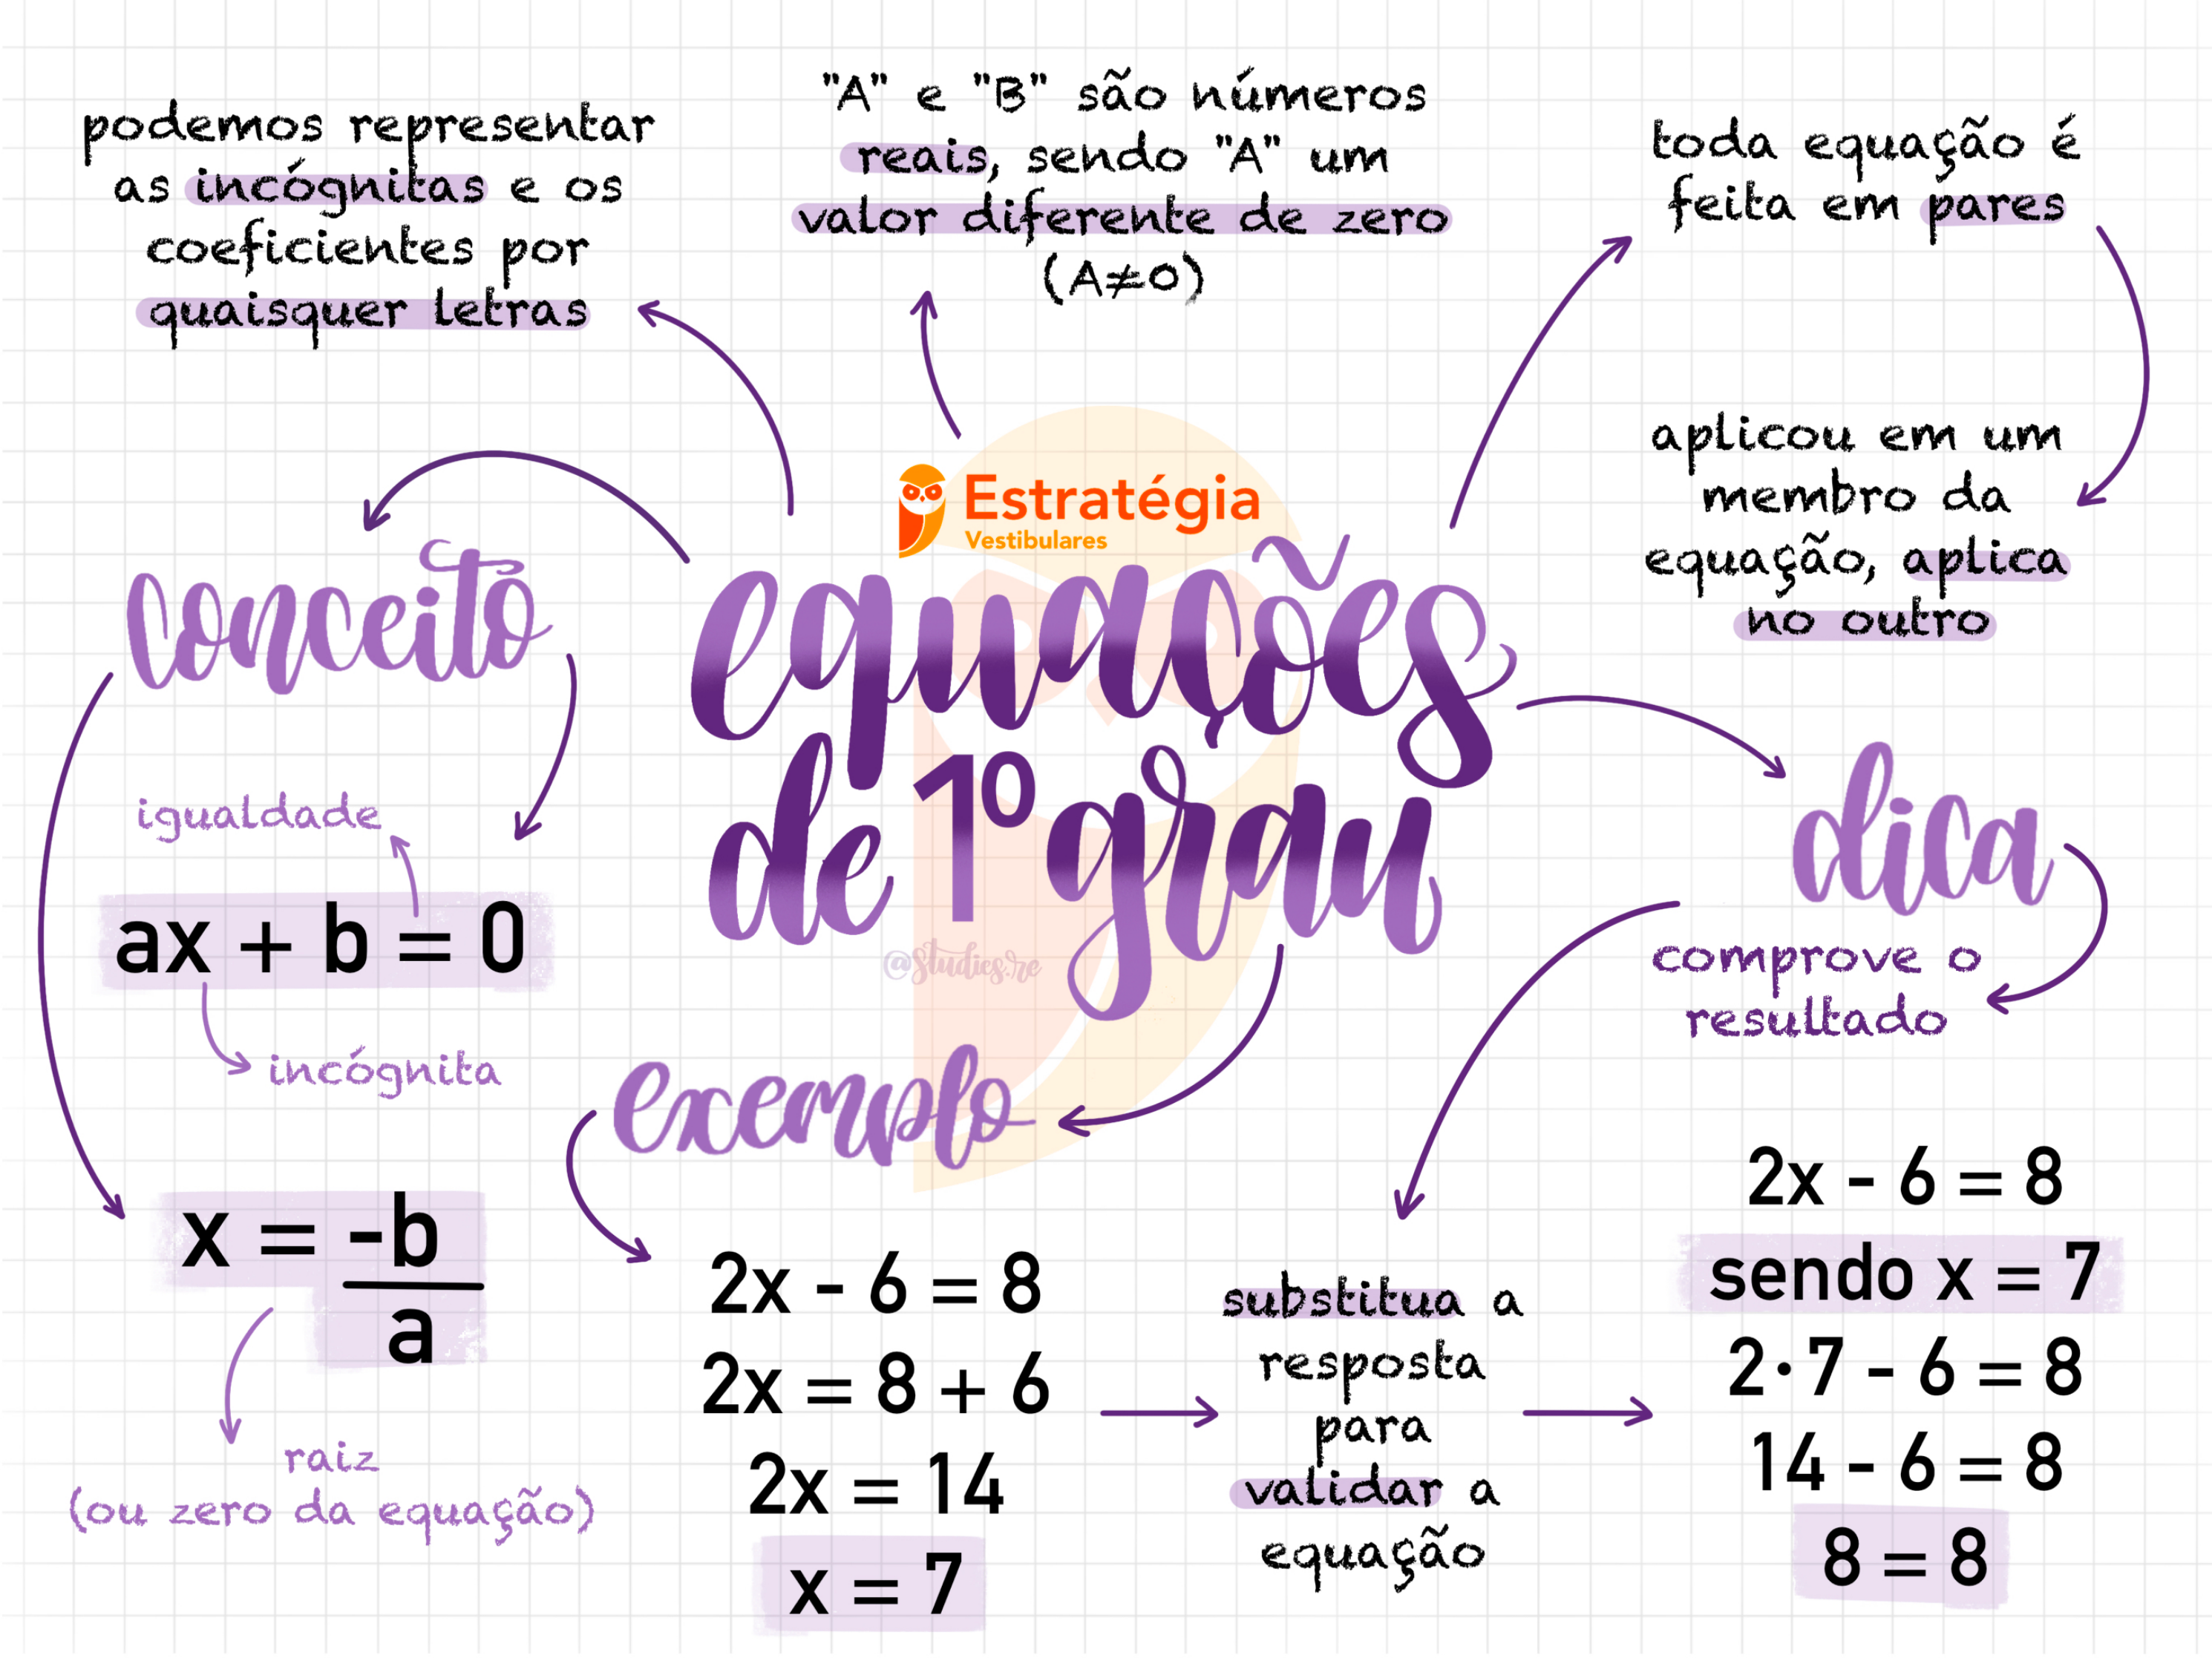 podemos representar
as incógnitas e os
coeficientes por
quaisquer letras
"A" e "B" são números
reais, sendo "A" um
valor diferente de zero
(A≠0)
toda equação é
feita em pares
aplicou em um
membro da
equação, aplica
no outro
Estratégia
Vestibulares
equações
de 1º grau
@studies.re
conceito
igualdade
ax + b = 0
incógnita
x = -b
a
raiz
(ou zero da equação)
exemplo
2x - 6 = 8
2x = 8 + 6
2x = 14
x = 7
dica
comprove o
resultado
substitua a
resposta
para
validar a
equação
2x - 6 = 8
sendo x = 7
2·7 - 6 = 8
14 - 6 = 8
8 = 8